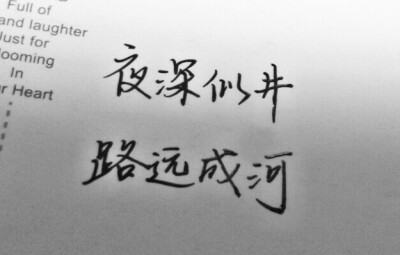 Full of
and laughter
Just for
looming
In
r Heart
夜深似井
路远成河